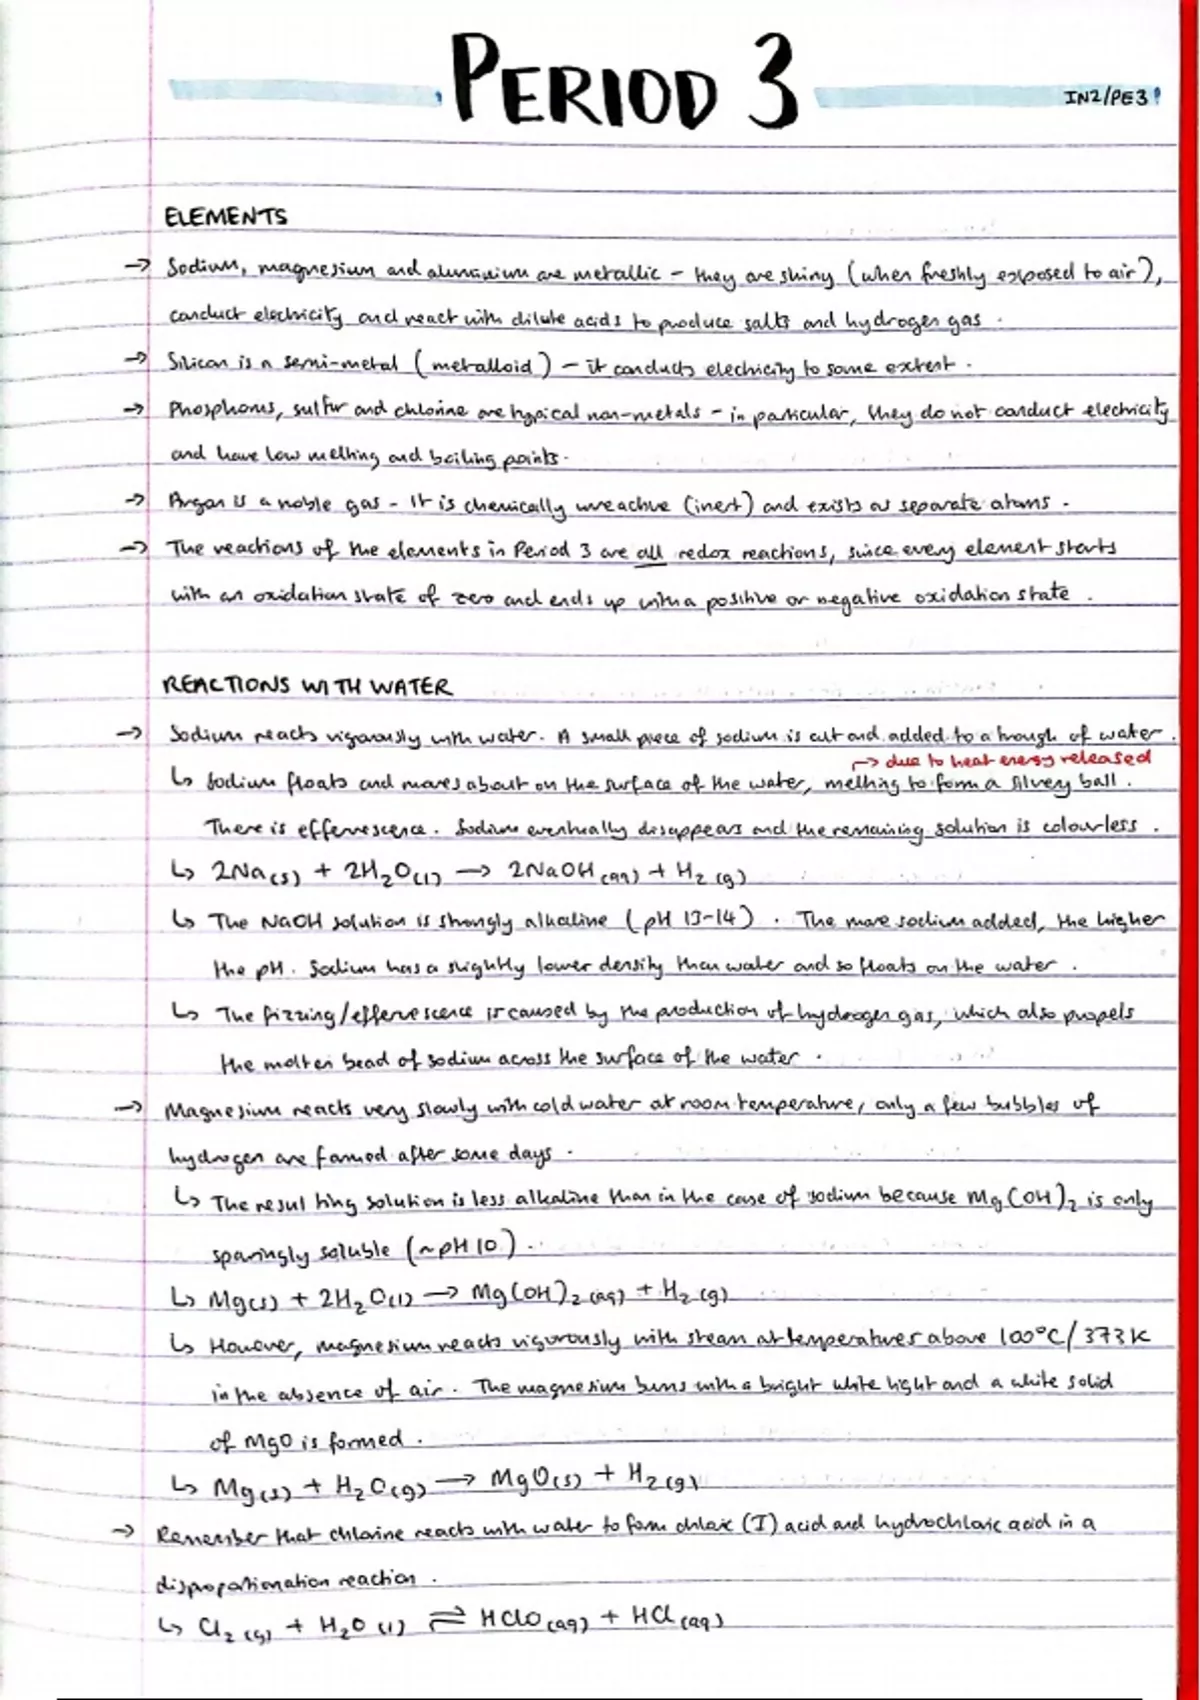 PERIOD 3
IN2/PE3
ELEMENTS
→ Sodium, magnesium and aluminium are metallic – they are shiny (when freshly exposed to air),
conduct electricity and react with dilute acids to produce salts and hydrogen gas.
→ Silicon is a semi-metal (metalloid) – it conducts electricity to some extent.
→ Phosphorus, sulfur and chlorine are typical non-metals – in particular, they do not conduct electricity
and have low melting and boiling points.
→ Argon is a noble gas – it is chemically unreactive (inert) and exists as separate atoms.
→ The reactions of the elements in Period 3 are all redox reactions, since every element starts
with an oxidation state of zero and ends up with a positive or negative oxidation state.
REACTIONS WITH WATER
→ Sodium reacts vigorously with water. A small piece of sodium is cut and added to a trough of water.
→ due to heat energy released
↳ Sodium floats and moves about on the surface of the water, melting to form a silvery ball.
There is effervescence. Sodium eventually disappears and the remaining solution is colourless.
↳ 2Na(s) + 2H₂O(l) → 2NaOH(aq) + H₂(g)
↳ The NaOH solution is strongly alkaline (pH 13-14). The more sodium added, the higher
the pH. Sodium has a slightly lower density than water and so floats on the water.
↳ The fizzing/effervescence is caused by the production of hydrogen gas, which also propels
the molten bead of sodium across the surface of the water.
→ Magnesium reacts very slowly with cold water at room temperature, only a few bubbles of
hydrogen are formed after some days.
↳ The resulting solution is less alkaline than in the case of sodium because Mg(OH)₂ is only
sparingly soluble (~pH 10).
↳ Mg(s) + 2H₂O(l) → Mg(OH)₂(aq) + H₂(g)
↳ However, magnesium reacts vigorously with steam at temperatures above 100°C/373K
in the absence of air. The magnesium burns with a bright white light and a white solid
of MgO is formed.
↳ Mg(s) + H₂O(g) → MgO(s) + H₂(g)
→ Remember that chlorine reacts with water to form chloric (I) acid and hydrochloric acid in a
disproportionation reaction.
↳ Cl₂(g) + H₂O(l) ⇌ HClO(aq) + HCl(aq)